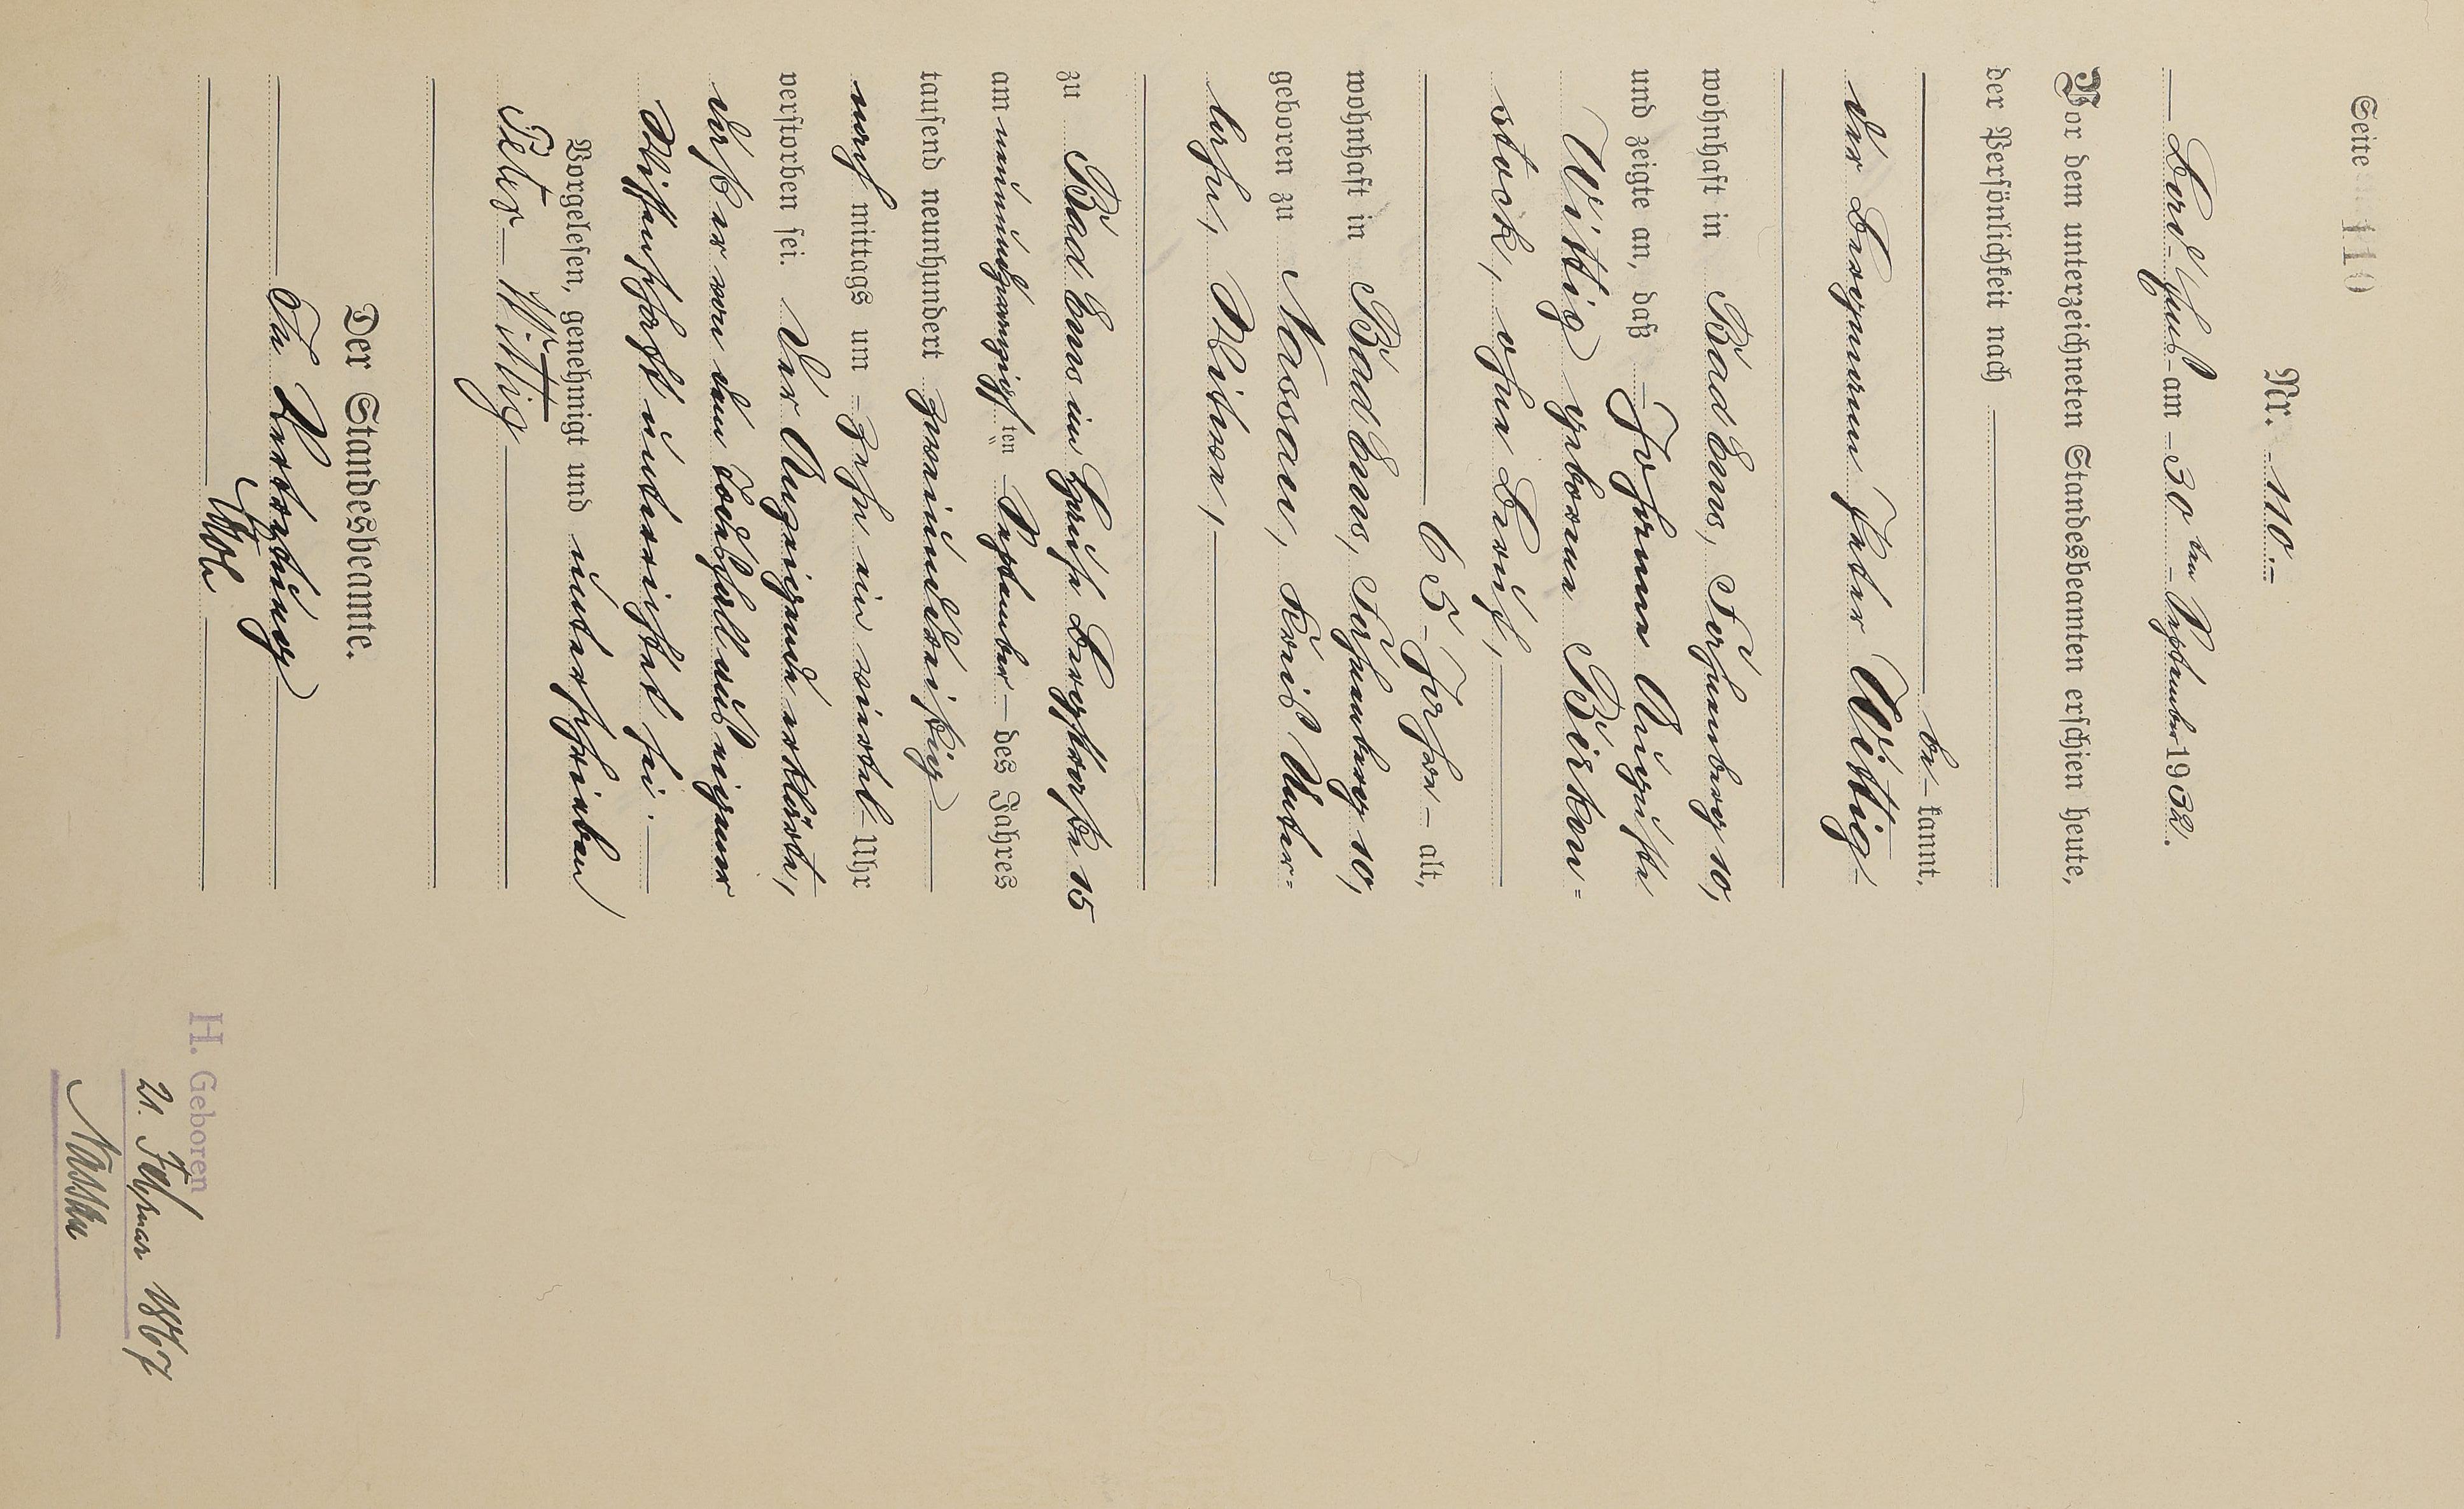 Seite 110
Nr. 110.
Bad Ems am 30ten September 1932.
Vor dem unterzeichneten Standesbeamten erschien heute,
der Persönlichkeit nach
be kannt,
der Bergmann Peter Wittig
wohnhaft in Bad Ems, 10,
und zeigte an, daß Johanna Auguste
Wittig geborene Birken=
stock, ohne Beruf,
65 Jahre alt,
wohnhaft in Bad Ems, 10,
geboren zu Nassau, Kreis Unter=
lahn, Witwe,
zu Bad Ems im Hause 15
am neunundzwanzigsten September des Jahres
tausend neunhundert zweiunddreißig
nach mittags um zehn ein viertel Uhr
verstorben sei. Der Anzeigende erklärte,
daß er von dem Todesfall aus eigener
Wissenschaft unterrichtet sei.
Vorgelesen, genehmigt und unterschrieben
Peter Wittig
Der Standesbeamte.
In Vertretung
H. Geboren
21. Februar 1867
Nassau